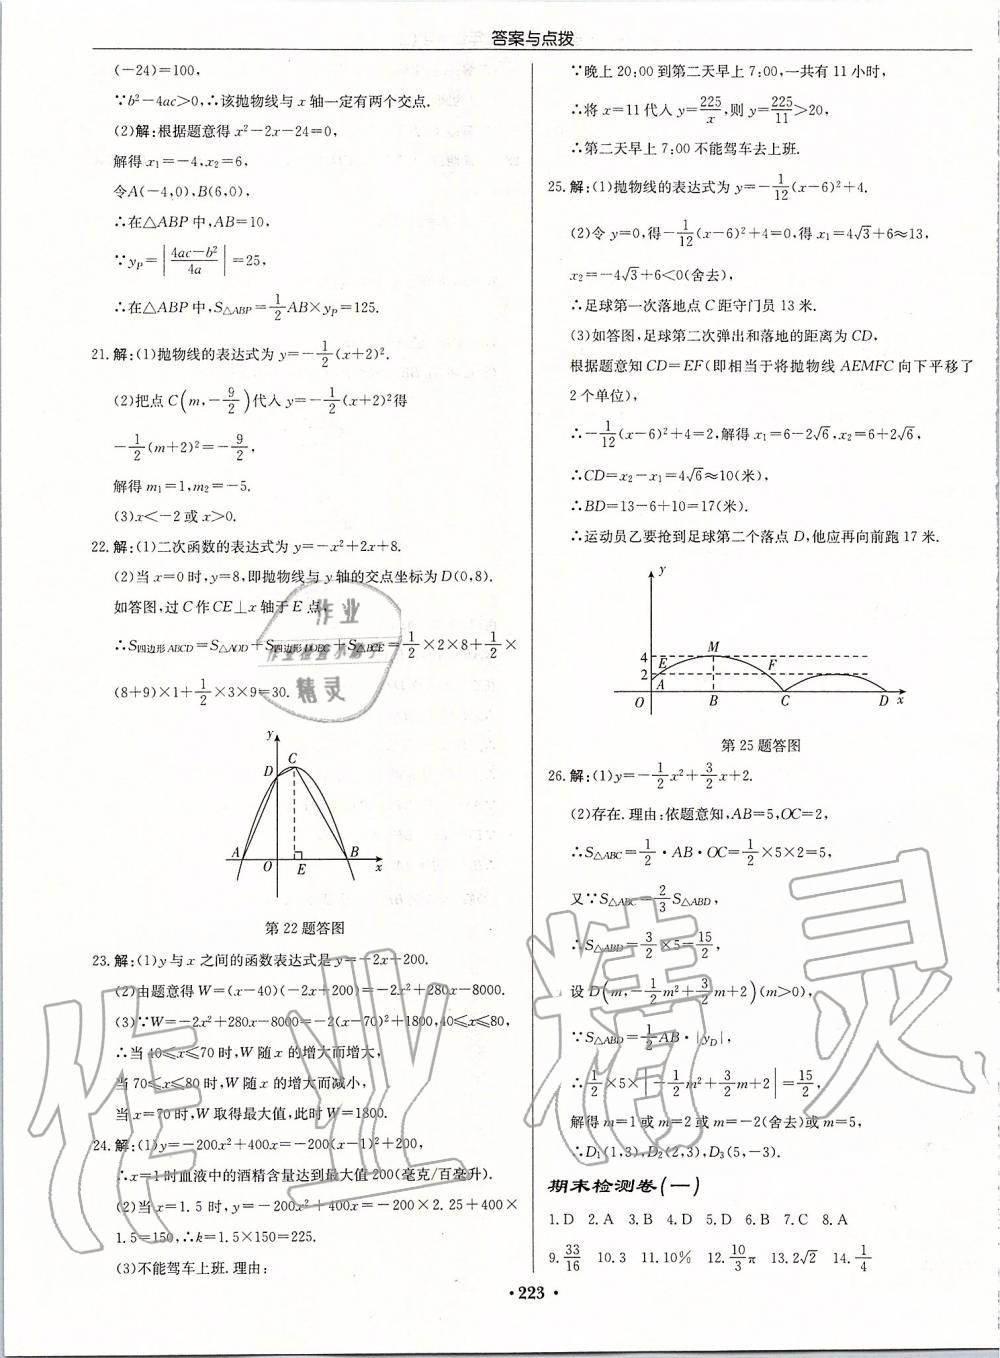 答案与点拨
(-24)=100,
∵b²-4ac>0,∴该抛物线与 x 轴一定有两个交点.
(2)解:根据题意得 x²-2x-24=0,
解得 x₁=-4,x₂=6,
令A(-4,0),B(6,0),
∴在△ABP 中,AB=10,
∵y_P=|(4ac-b²)/4a|=25,
∴在△ABP 中,S△ABP=1/2 AB×y_P=125.
21.解:(1)抛物线的表达式为 y=-1/2(x+2)².
(2)把点 C(m,-9/2)代入 y=-1/2(x+2)²得
-1/2(m+2)²=-9/2,
解得 m₁=1,m₂=-5.
(3)x<-2 或 x>0.
22.解:(1)二次函数的表达式为 y=-x²+2x+8.
(2)当 x=0时,y=8,即抛物线与 y 轴的交点坐标为 D(0,8).
如答图,过 C 作 CE⊥x 轴于 E 点,
∴S四边形ABCD=S△AOD+S四边形DOEC+S△BCE=1/2×2×8+1/2×
(8+9)×1+1/2×3×9=30.
y
C
D
A
O
E
B
x
第 22 题答图
23.解:(1)y 与 x 之间的函数表达式是 y=-2x+200.
(2)由题意得 W=(x-40)(-2x+200)=-2x²+280x-8000.
(3)∵W=-2x²+280x-8000=-2(x-70)²+1800,40≤x≤80,
∴当 40≤x≤70 时,W 随 x 的增大而增大,
当 70≤x≤80 时,W 随 x 的增大而减小,
当 x=70 时,W 取得最大值,此时 W=1800.
24.解:(1)y=-200x²+400x=-200(x-1)²+200,
∴x=1时血液中的酒精含量达到最大值 200(毫克/百毫升).
(2)当 x=1.5 时,y=-200x²+400x=-200×2.25+400×
1.5=150,∴k=1.5×150=225.
(3)不能驾车上班.理由:
∵晚上 20:00 到第二天早上 7:00,一共有 11 小时,
∴将 x=11 代入 y=225/x,则 y=225/11>20,
∴第二天早上 7:00 不能驾车去上班.
25.解:(1)抛物线的表达式为 y=-1/12(x-6)²+4.
(2)令 y=0,得-1/12(x-6)²+4=0,得 x₁=4√3+6≈13,
x₂=-4√3+6<0(舍去),
∴足球第一次落地点 C 距守门员 13 米.
(3)如答图,足球第二次弹出和落地的距离为 CD,
根据题意知 CD=EF(即相当于将抛物线 AEMFC 向下平移了
2 个单位),
∴-1/12(x-6)²+4=2,解得 x₁=6-2√6,x₂=6+2√6,
∴CD=x₂-x₁=4√6≈10(米),
∴BD=13-6+10=17(米).
∴运动员乙要抢到足球第二个落点 D,他应再向前跑 17 米.
y
4
M
2
E
F
A
O
B
C
D
x
第 25 题答图
26.解:(1)y=-1/2x²+3/2x+2.
(2)存在.理由:依题意知,AB=5,OC=2,
∴S△ABC=1/2·AB·OC=1/2×5×2=5,
又∵S△ABC=2/3 S△ABD,
∴S△ABD=3/2×5=15/2,
设 D(m,-1/2m²+3/2m+2)(m>0),
∵S△ABD=1/2AB·|y_D|,
∴1/2×5×|-1/2m²+3/2m+2|=15/2,
解得 m=1 或 m=2 或 m=-2(舍去)或 m=5,
∴D₁(1,3),D₂(2,3),D₃(5,-3).
期末检测卷(一)
1.D 2.A 3.B 4.D 5.D 6.B 7.C 8.A
9.33/16 10.3 11.10% 12.10/3π 13.2√2 14.1/4
· 223 ·
作业
作业检查小助手
精灵
作业精灵